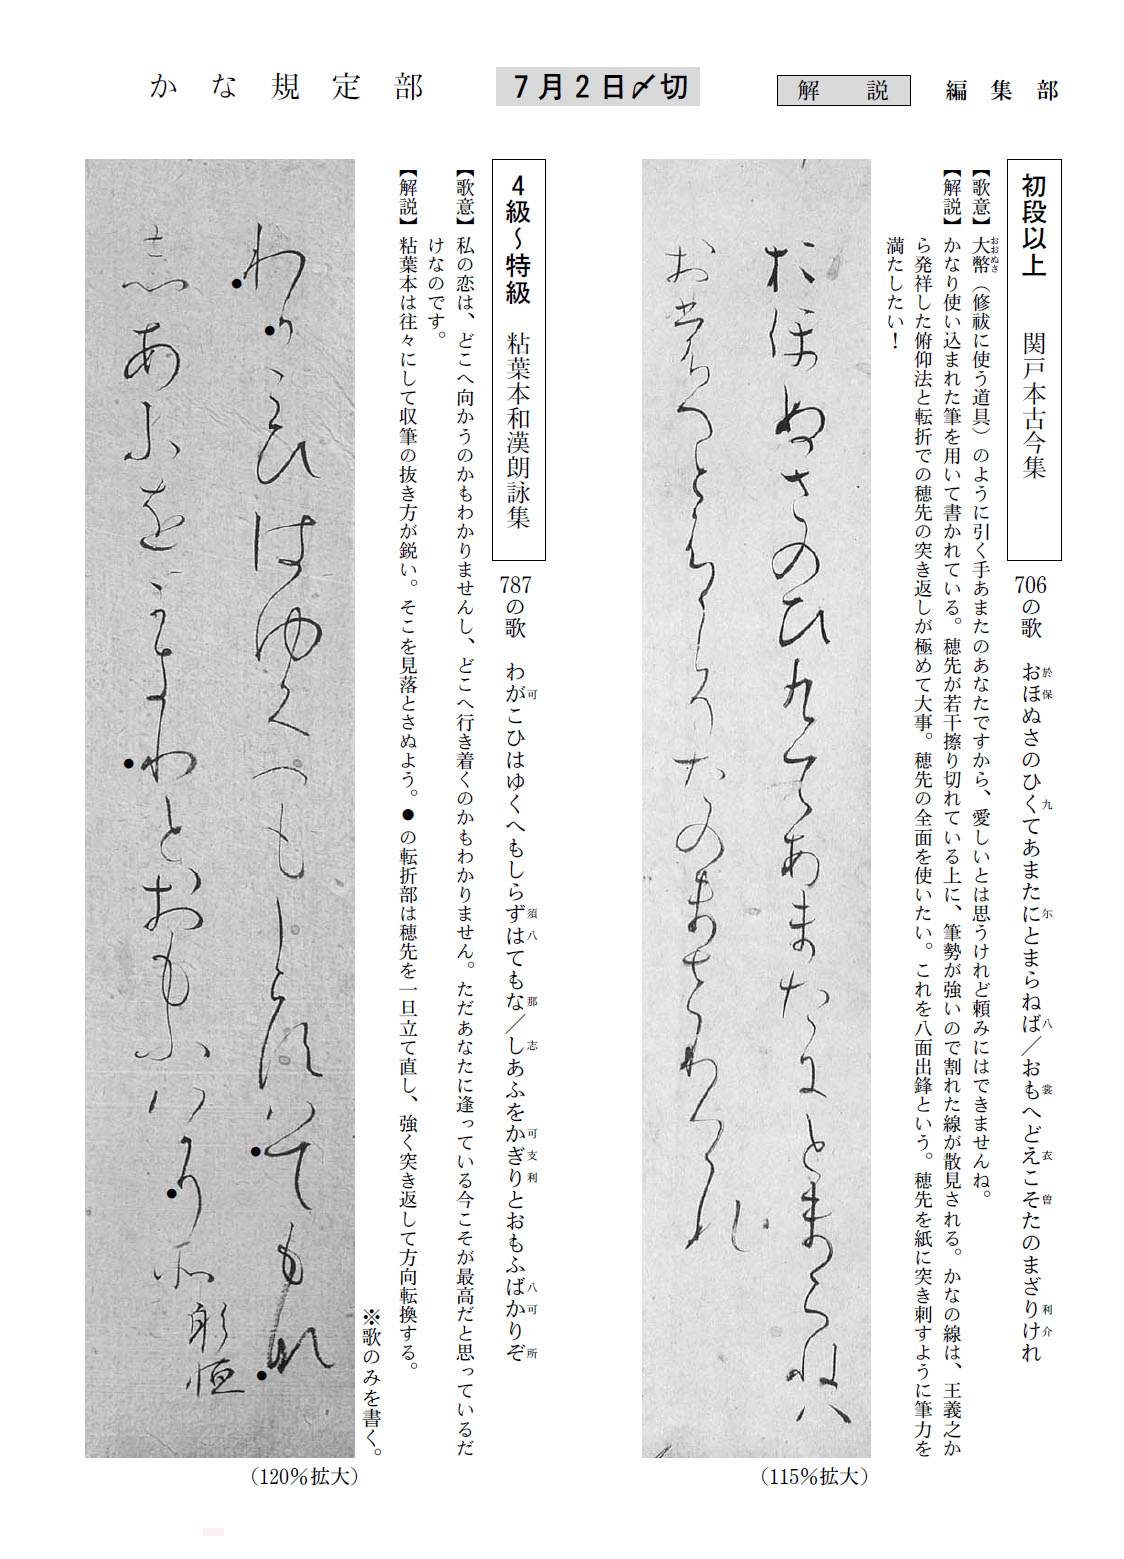 かな規定部
7月2日〆切
解説
編集部
初段以上　関戸本古今集
706の歌　おほぬさのひくてあまたにとまらねば／おもへどえこそたのまざりけれ
於保　九　尓　八　裳　衣　曽　利介
【歌意】大幣（修祓に使う道具）のように引く手あまたのあなたですから、愛しいとは思うけれど頼みにはできませんね。
おおぬさ
【解説】かなり使い込まれた筆を用いて書かれている。穂先が若干擦り切れている上に、筆勢が強いので割れた線が散見される。かなの線は、王義之か
ら発祥した俯仰法と転折での穂先の突き返しが極めて大事。穂先の全面を使いたい。これを八面出鋒という。穂先を紙に突き刺すように筆力を
満たしたい！
おほぬさのひ九てあまたにとまらねハ
（115％拡大）
4級～特級　粘葉本和漢朗詠集
787の歌　わがこひはゆくへもしらずはてもな／しあふをかぎりとおもふばかりぞ
可　須八　那　志　可支利　八可　所
【歌意】私の恋は、どこへ向かうのかもわかりませんし、どこへ行き着くのかもわかりません。ただあなたに逢っている今こそが最高だと思っているだ
けなのです。
【解説】粘葉本は往々にして収筆の抜き方が鋭い。そこを見落とさぬよう。●の転折部は穂先を一旦立て直し、強く突き返して方向転換する。
※歌のみを書く。
躬恒
（120％拡大）